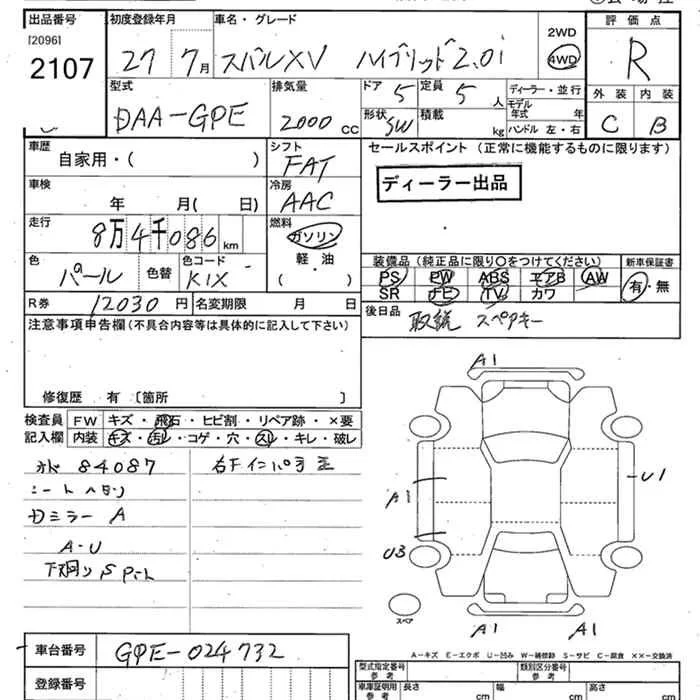 出品番号 初度登録年月 車名・グレード 2WD 評価点
[2096]
2107 27 7月 スバルXV ハイブリッド2.0i 4WD R
型式 排気量 ドア 5 定員 5 人 ディーラー・並行 外装 内装
DAA-GPE 2000 CC 形状 SW 積載 kg モデル年式 年 ハンドル 左・右 C B
車歴 シフト セールスポイント (正常に機能するものに限ります)
自家用・( ) FAT
ディーラー出品
車検 冷房
年 月( 日) AAC
走行 燃料
8万4千086km ガソリン
軽油
( )
装備品 (純正品に限り○をつけてください) 新車保証書
色 色替 色コード PS PW ABS エアB AW 有・無
パール KIX SR ナビ TV カワ
R券 12030円 名変期限 月 日 後日品 取説 スペアキー
注意事項申告欄(不具合内容等は具体的に記入して下さい)
修復歴 有 〔箇所 〕
検査員 FW キズ・飛石・ヒビ割・リペア跡・×要
記入欄 内装 キズ・汚レ・コゲ・穴・スレ・キレ・破レ
84087
シート
ミラー A
A・U
下廻りS
A1
A1
U3
U1
A1 A1
スペア
A-キズ E-エクボ U-凹み W-補修跡 S-サビ C-腐食 ××-交換済
車台番号 GPE-024732
登録番号
型式指定番号 参考 類別区分番号 参考
車庫証明用 参考 長さ cm 幅 cm 高さ cm